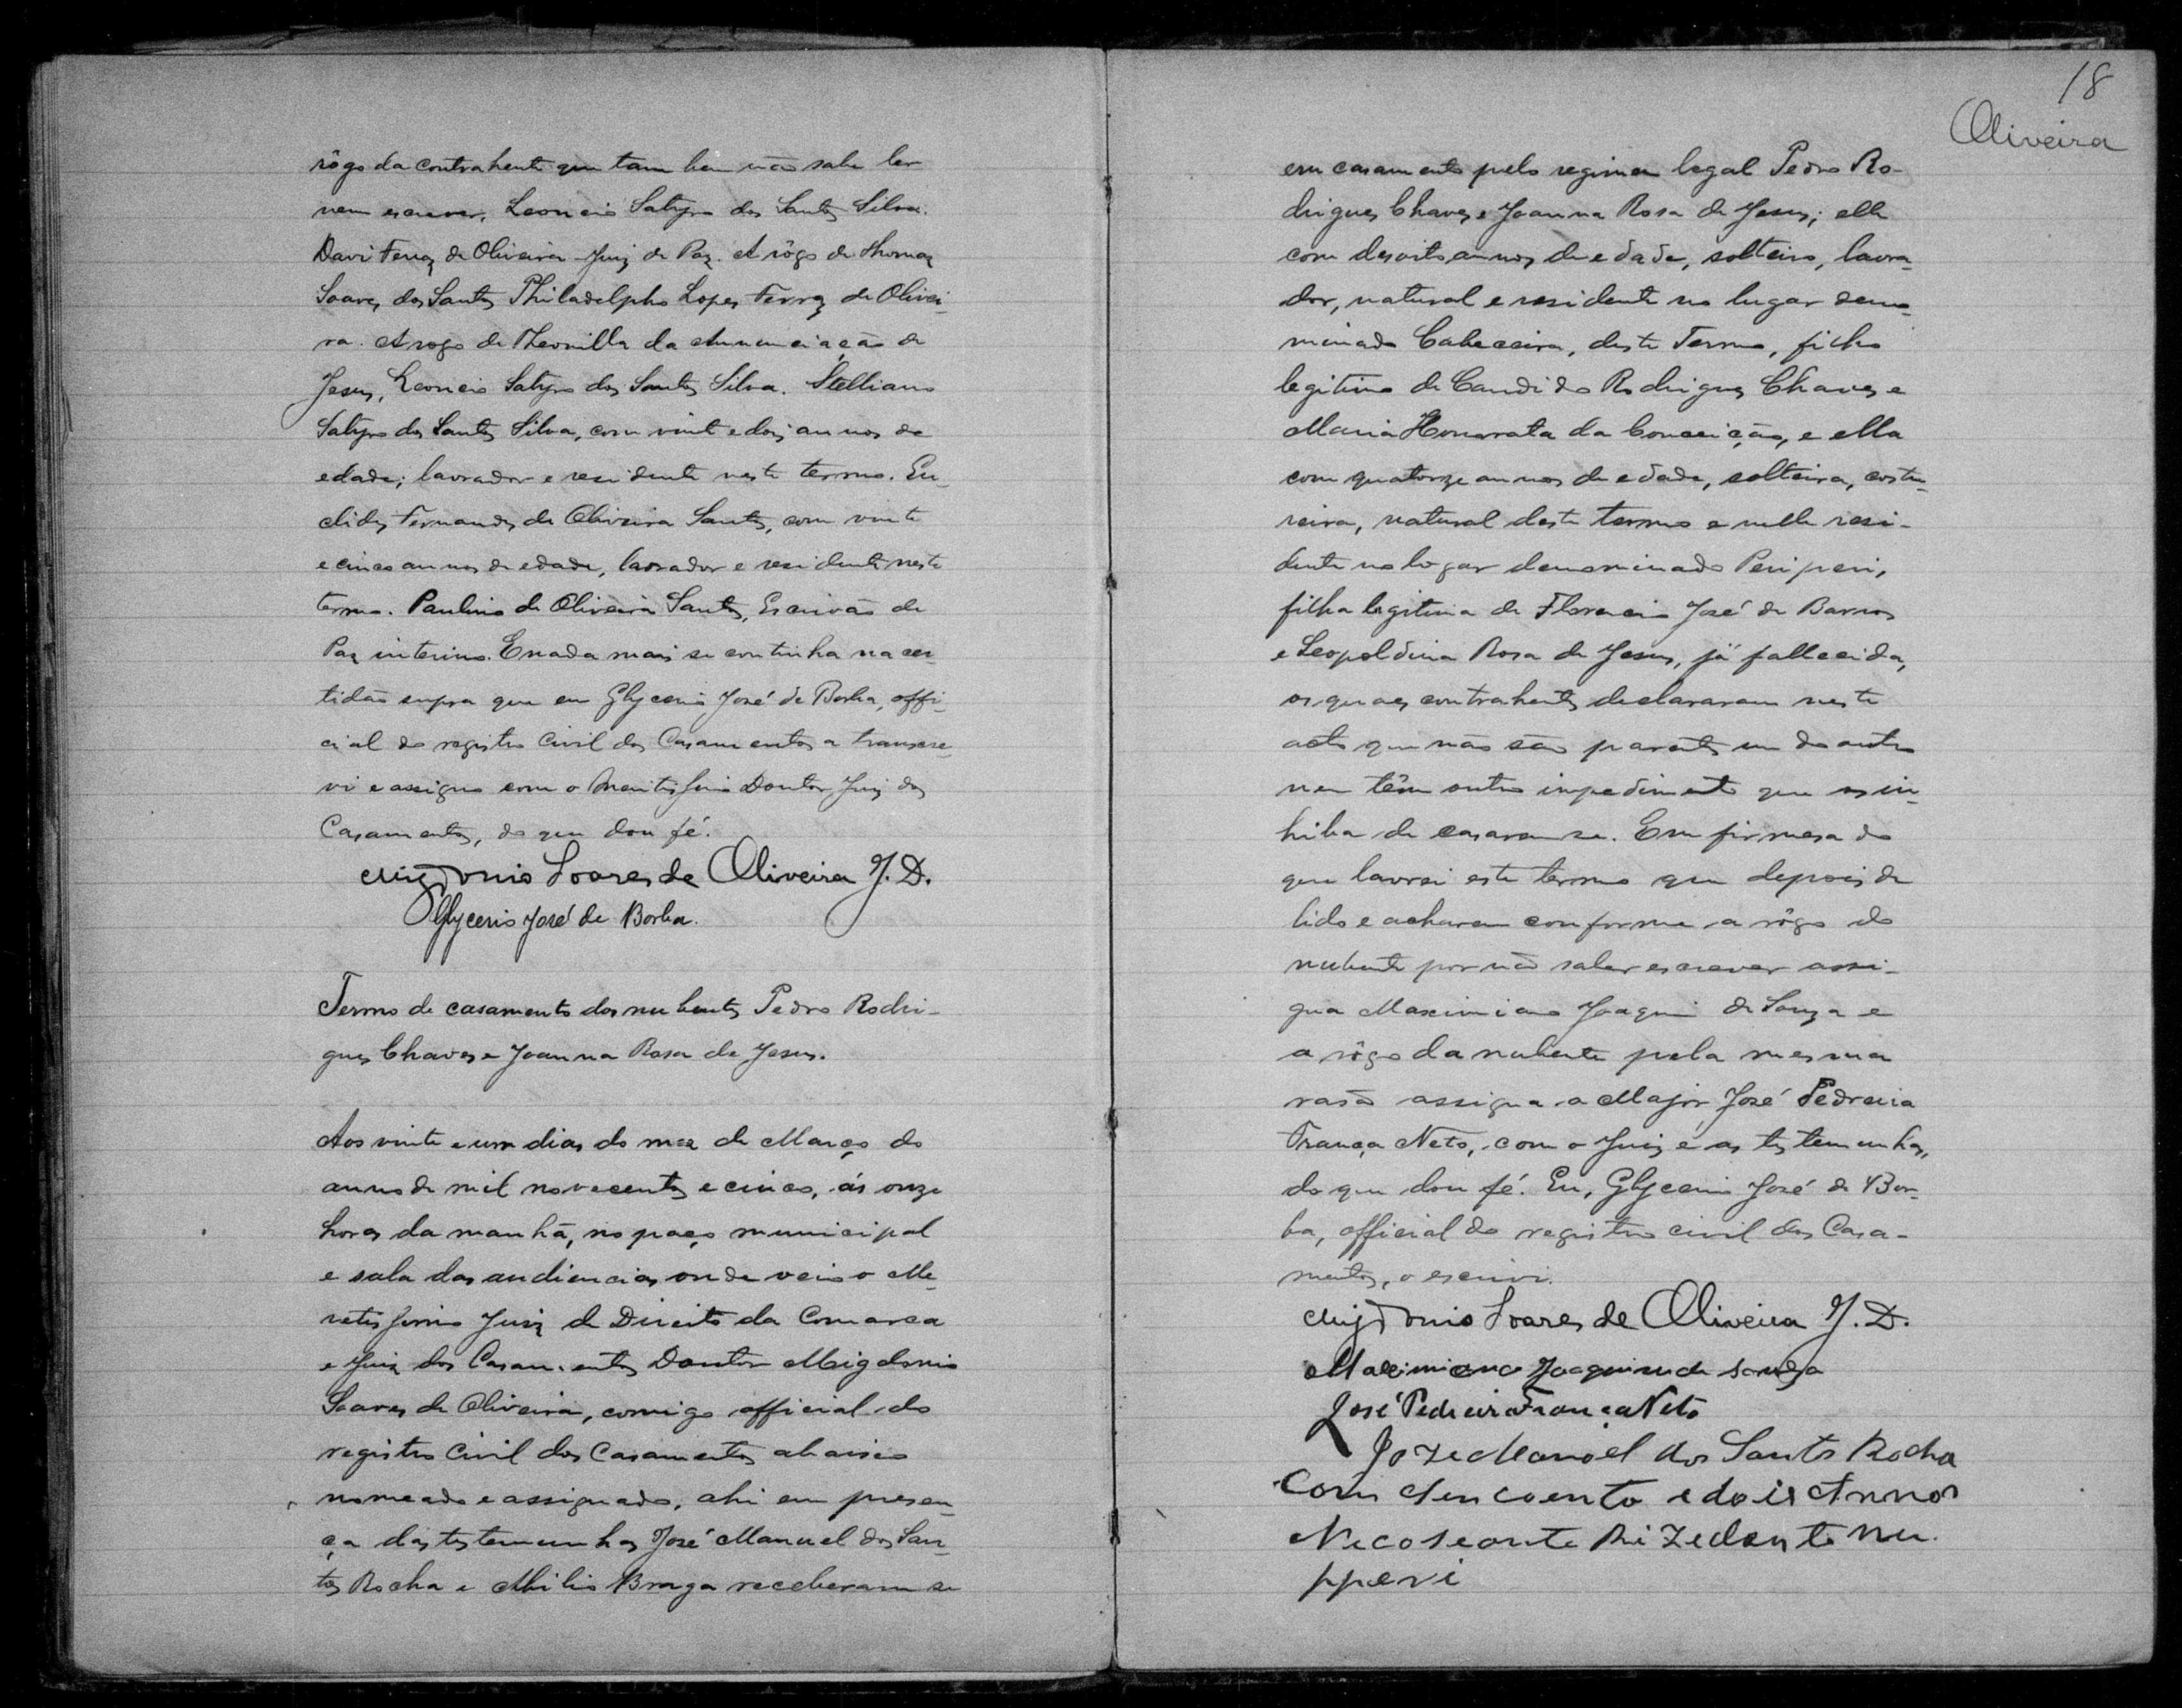 rôgo da contrahente que tam bem não sabe ler
nem escrever, Leoncio Satyro dos Santos Silva.
Davi Ferraz de Oliveira Juiz de Paz. A rôgo de Thomaz
Soares dos Santos Philadelpho Lopes Ferraz de Olivei-
ra. A rogo de Theonilla da Annunciação de
Jesus, Leoncio Satyro dos Santos Silva. Stelliano
Satyro dos Santos Silva, com vinte e dois annos de
edade; lavrador e residente neste termo. Eu-
clides Fernandes de Oliveira Santos, com vinte
e cinco annos de edade, lavrador e residente neste
termo. Paulino de Oliveira Santos, Escrivão de
Paz interino. E nada mais se continha na cer-
tidão supra que eu Glycerio José de Borba, offi-
cial do registro Civil dos Casamentos a transcre-
vi e assigno com o Meritissimo Doutor Juiz dos
Casamentos, do que dou fé.
Migdonio Soares de Oliveira J. D.
Glycerio José de Borba.
Termo de casamento dos nubentes Pedro Rodri-
gues Chaves e Joanna Rosa de Jesus.
Aos vinte e um dias do mez de Março do
anno de mil novecentos e cinco, ás onze
horas da manhã, no paço municipal
e sala das audiencias onde veio o Me-
retissimo Juiz de Direito da Comarca
e Juiz dos Casamentos Doutor Migdonio
Soares de Oliveira, comigo official do
registro Civil dos Casamentos abaixo
nomeado e assignado, ahi em presen-
ça das testemunhas José Manuel dos San-
tos Rocha e Abilio Braga receberam se
18
Oliveira
em casamento pelo regimen legal Pedro Ro-
drigues Chaves e Joanna Rosa de Jesus; elle
com desoito annos de edade, solteiro, lavra-
dor, natural e residente no lugar deno-
minado Cabeceira, deste Termo, filho
legitimo de Candido Rodrigues Chaves e
Maria Honorata da Conceição, e ella
com quatorze annos de edade, solteira, costu-
reira, natural deste termo e nelle resi-
dente no logar denominado Periperi,
filha legitima de Florencio José de Barros
e Leopoldina Rosa de Jesus, já fallecida,
os quaes contrahentes declararam neste
acto que não são parentes um do outro
nem têm outro impedimento que os in-
hiba de casarem se. Em firmesa do
que lavrei este termo que depois de
lido e acharem conforme a rôgo do
nubente por não saber escrever assi-
gna Maximiano Joaquim de Souza e
a rôgo da nubente pela mesma
rasão assigna o Major José Pedreira
França Neto, com o Juiz e as testemunhas,
do que dou fé. Eu, Glycerio José de Bor-
ba, official do registro civil dos Casa-
mentos, o escrivi.
Migdonio Soares de Oliveira J. D.
Maximiano Joaquim de Souza
José Pedreira França Neto
Joze Manoel dos Santos Rocha
Com sencoenta e dois Annos
Necoseante Rizedente nu
pperi